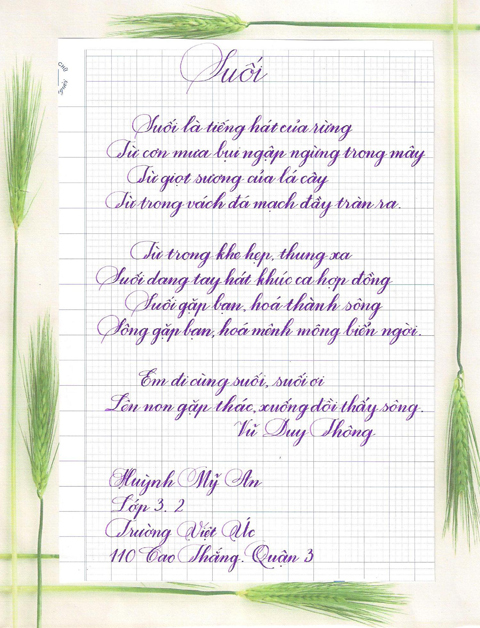 Suối
Suối là tiếng hát của rừng
Từ cơn mưa bụi ngập ngừng trong mây
Từ giọt sương của lá cây
Từ trong vách đá mạch đầy tràn ra.
Từ trong khe hẹp, thung xa
Suối dang tay hát khúc ca hợp đồng
Suối gặp bạn, hoá thành sông
Sông gặp bạn, hoá mênh mông biển ngời.
Em đi cùng suối, suối ơi
Lên non gặp thác, xuống đồi thấy sông.
Vũ Duy Thông
Huỳnh Mỹ An
Lớp 3.2
Trường Việt Úc
110 Cao Thắng. Quận 3